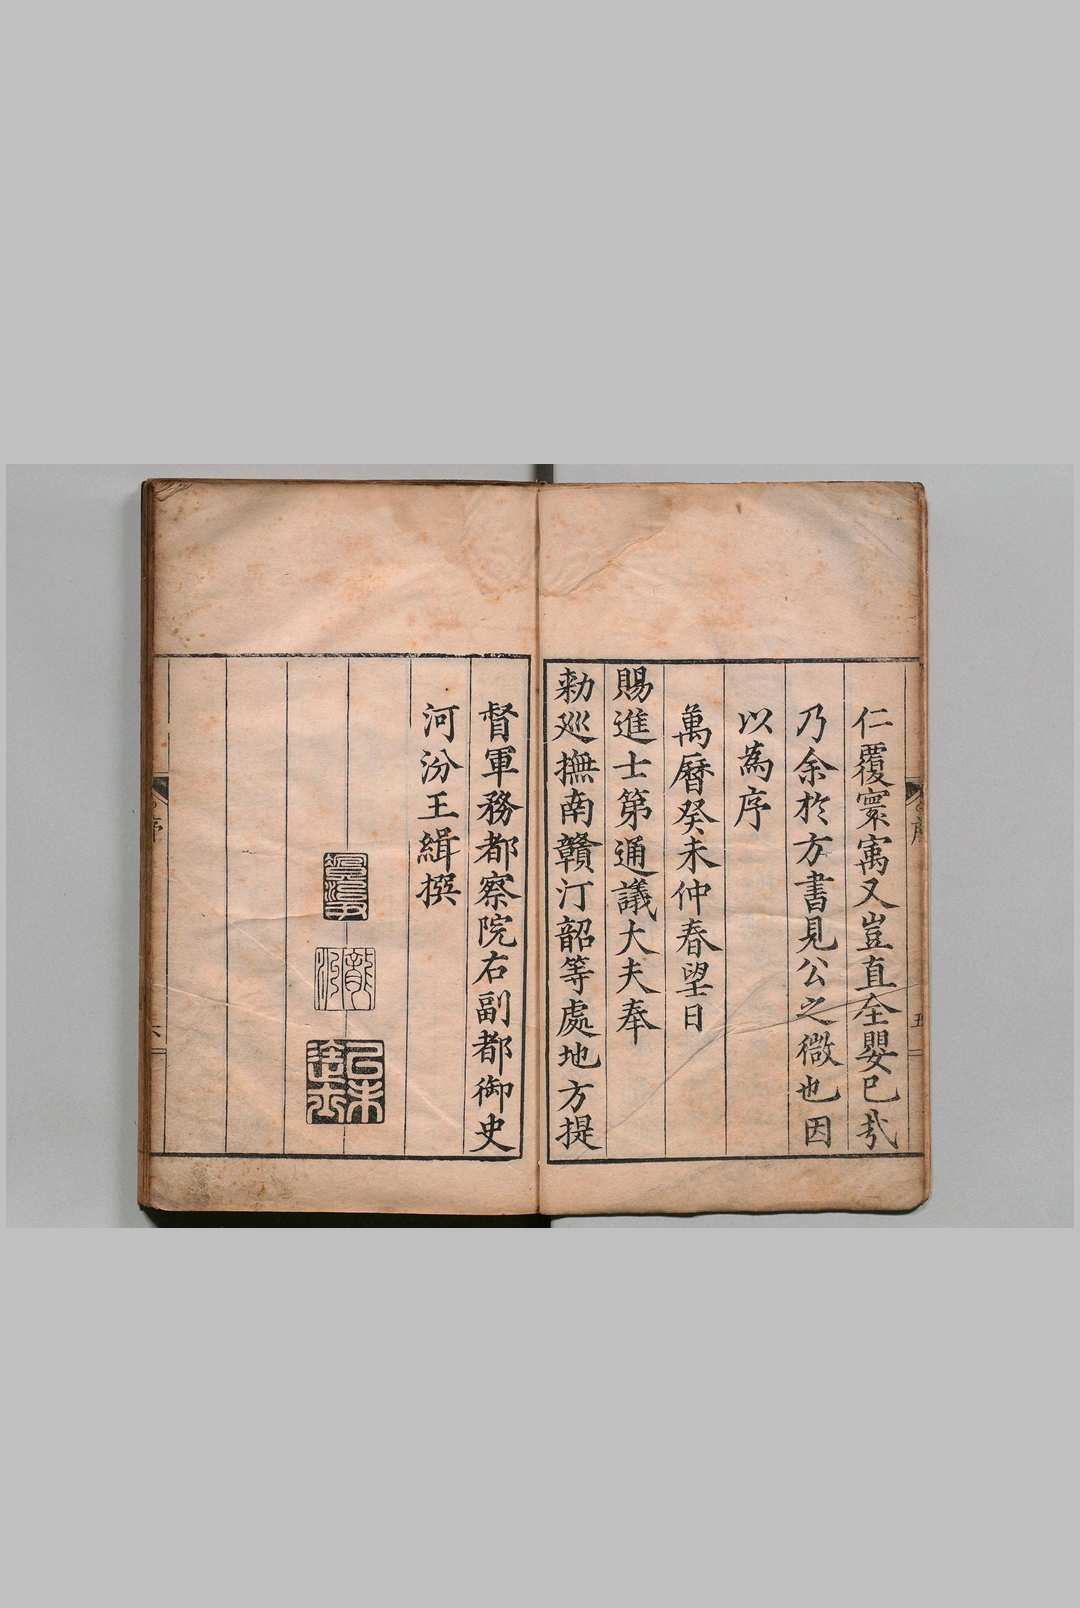 仁覆寰寓又豈直全嬰已㢤
乃余於方書見公之微也因
以為序
萬曆癸未仲春望日
賜進士第通議大夫奉
勅廵撫南贛汀韶等處地方提
督軍務都察院右副都御史
河汾王緝撰
己未進士
序
五
序
六